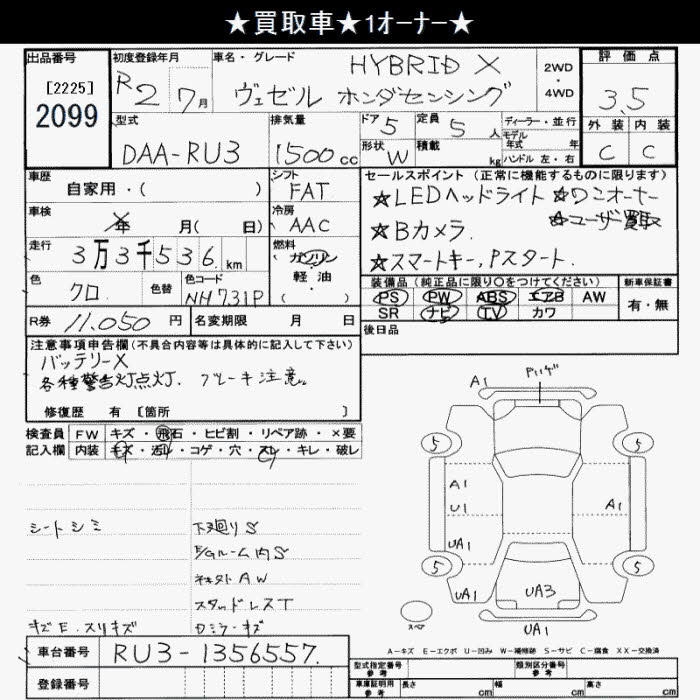 ★買取車★1オーナー★
出品番号 初度登録年月 車名・グレード 評価点
[2225]
2099
R2 7月
HYBRID X
ヴェゼル ホンダセンシング
2WD・4WD
3.5
外装 内装
C C
型式 排気量 ドア 5 定員 5人 ディーラー・並行
DAA-RU3 1500cc 形状 W 積載 kg モデル年式 年
ハンドル 左・右
車歴 シフト セールスポイント(正常に機能するものに限ります)
自家用・( ) FAT
★LEDヘッドライト ☆ワンオーナー
☆ユーザー買取
車検 年 月( 日) 冷房 AAC
★Bカメラ.
走行 3万3千536km 燃料 ガソリン・軽油・( )
★スマートキー, Pスタート.
色 クロ 色替 色コード NH731P
装備品(純正品に限り○をつけてください) 新車保証書
PS PW ABS エアB AW 有・無
SR ナビ TV カワ
R券 11,050円 名変期限 月 日
後日品
注意事項申告欄(不具合内容等は具体的に記入して下さい)
バッテリーX
各種警告灯点灯. ブレーキ注意。
修復歴 有 [箇所 ]
検査員 FW キズ・飛石・ヒビ割・リペア跡・×要
記入欄 内装 キズ・汚れ・コゲ・穴・スレ・キレ・破レ
シートシミ 下廻りS
E/Gルーム内S
社外AW
スタッドレスT
キズE.スリキズ
車台番号 RU3-1356557.
登録番号
A1
5 5
A1
U1
A1
UA1
5 5
UA1 UA3 UA1
スペア
UA1
A-キズ E-エクボ U-凹み W-補修跡 S-サビ C-腐食 XX-交換済
型式指定番号 参考 類別区分番号 参考
車庫証明用 参考 長さ cm 幅 cm 高さ cm